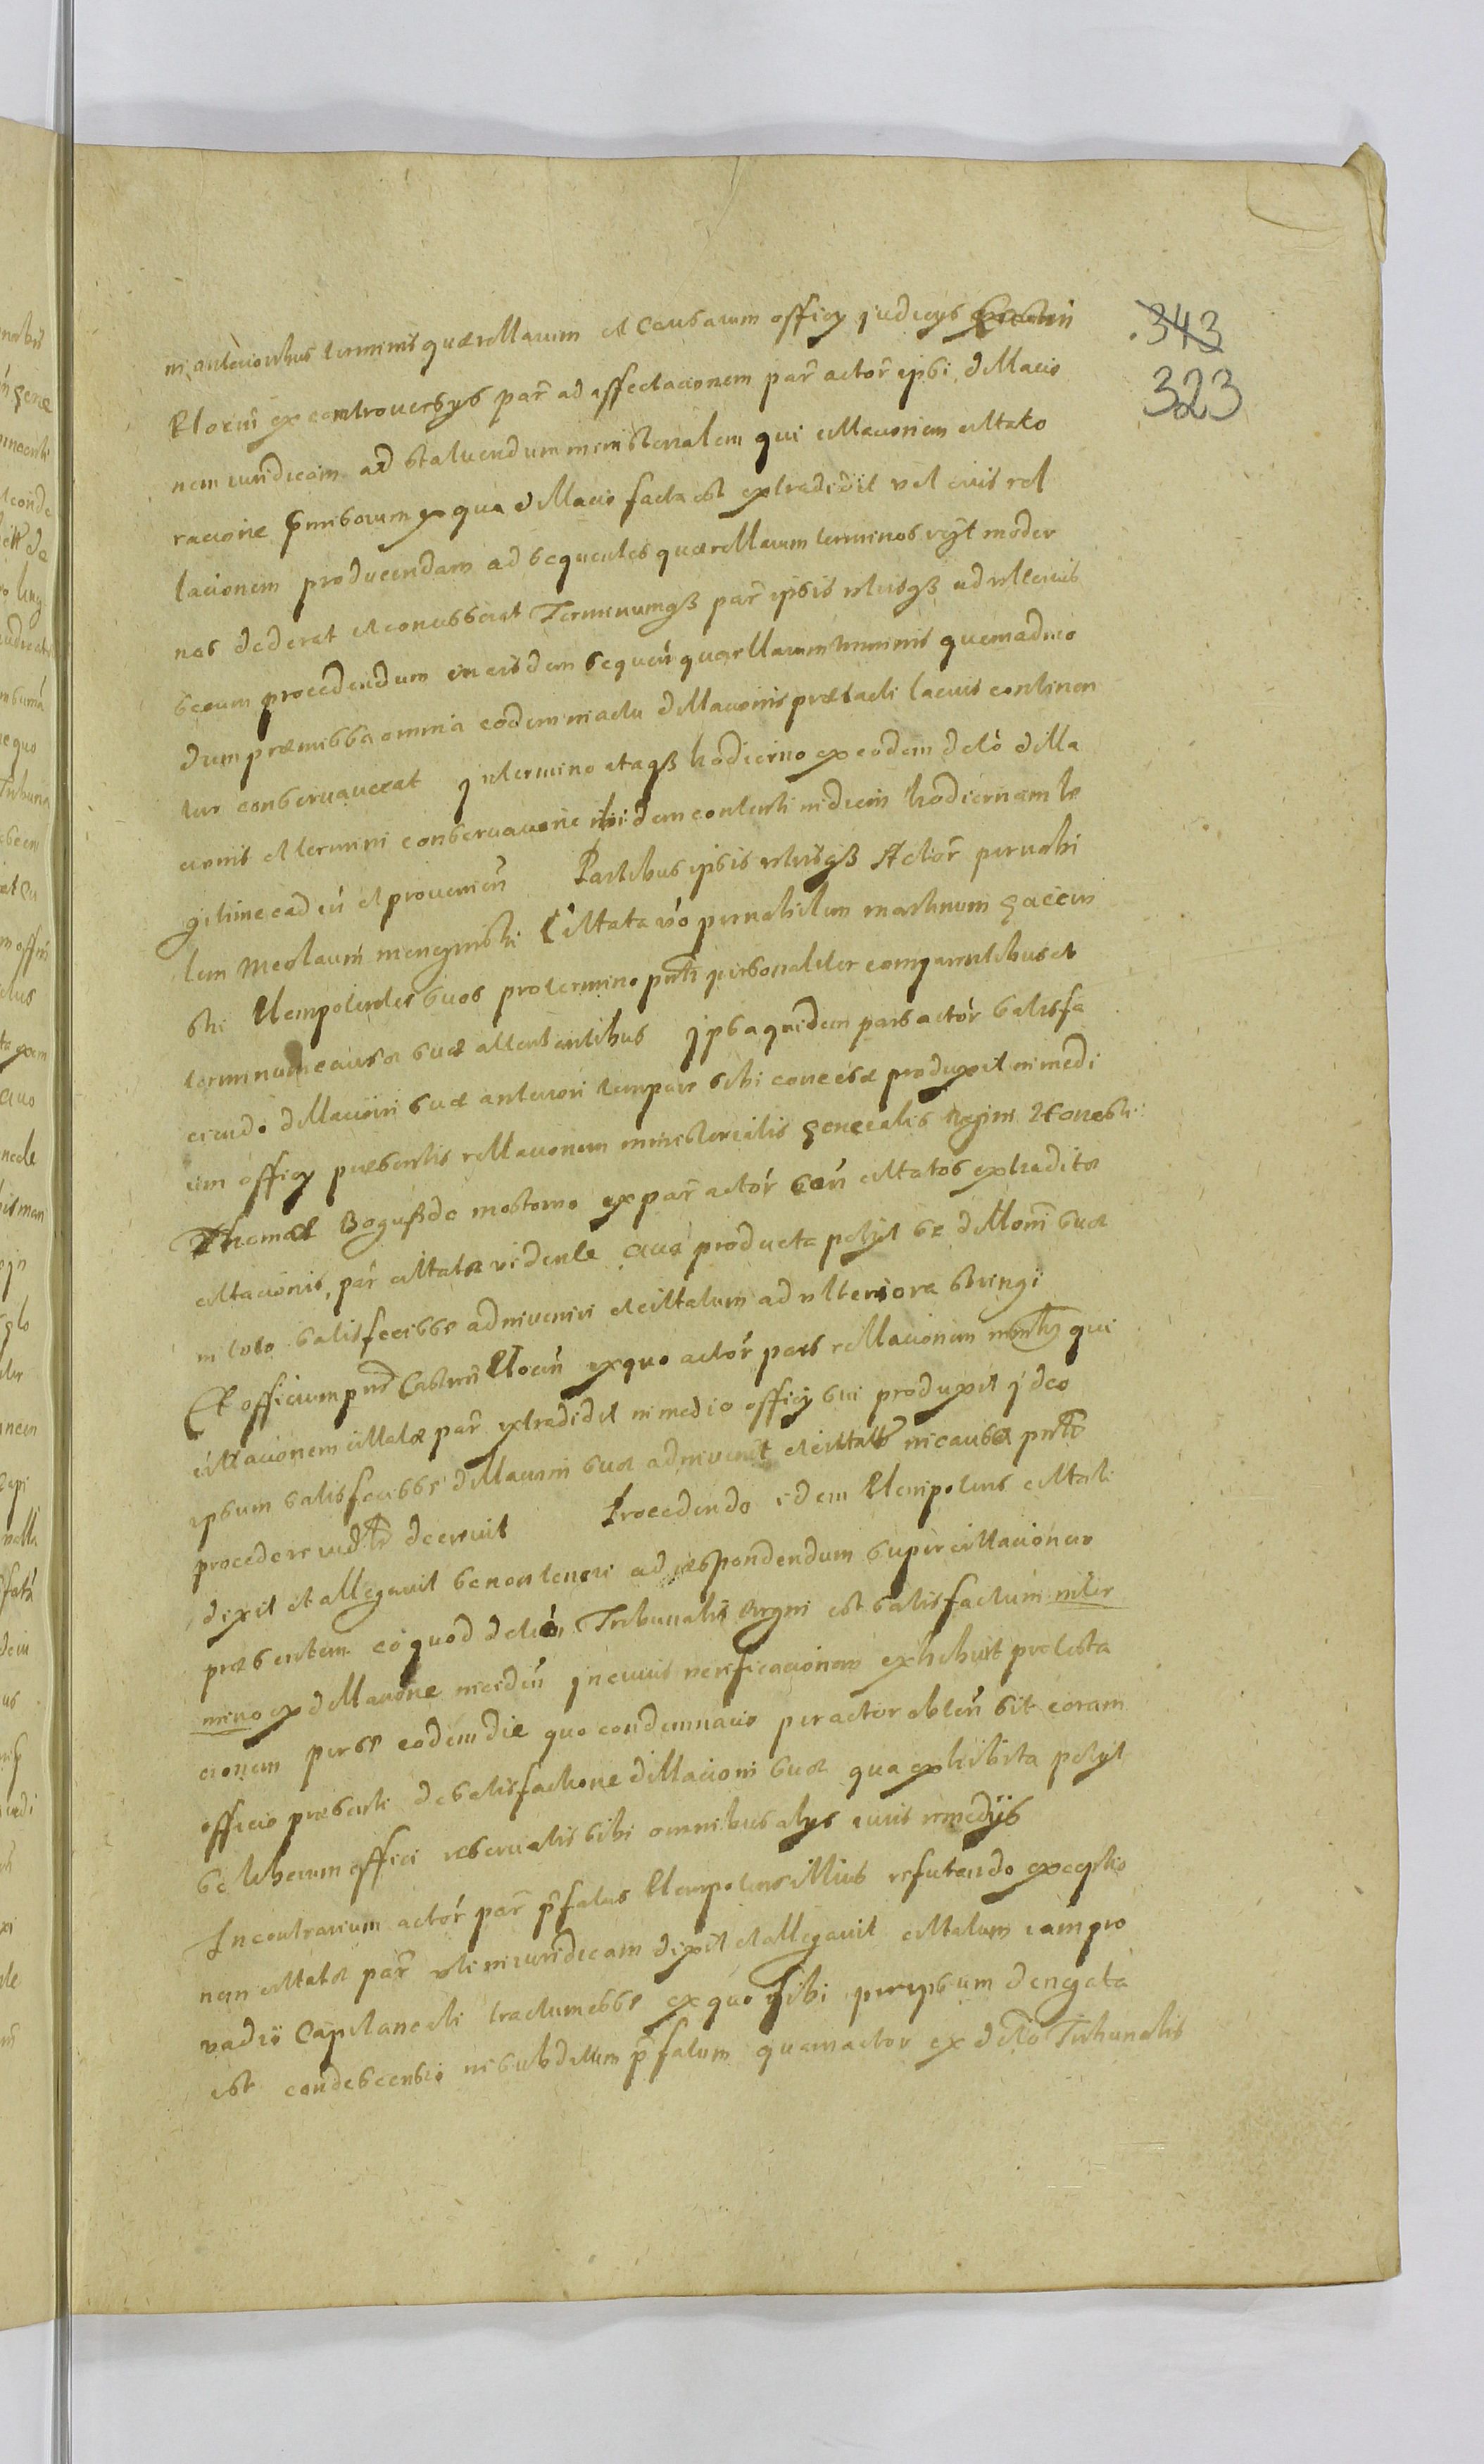 343
323
in anterioribus terminis quærellarum et Causarum officy judicys Castren
Plocen ex controversys par ad affectacionem par actor ipsi dillacio
nem iuridicam ad statuendum ministerialem qui cittacionem cittato
racione pmissorum ex qua dillacio facta est extradidit vel eius rel
lacionem producendam ad sequentes quærellarum terminos uti moder
nos dederat et concesserat Terminumqз par ipsis utrisqз ad ulterius
secum procedendum in eisdem sequen quærellarum terminis quemadmo
dum præmissa omnia eodem in actu dillacionis prætacti lacius continen
tur conservaverat Jn termino itaqз hodierno ex eodem decto dilla
cionis et termini conservacione ibidem contenti in diem hodiernam le
gitime caden et provenien Partibus ipsis utrisqз Actor per nobi
lem Meolaum Citata vo per nobilem Martinum
ski plenipotentes suos pro termino pnti personaliter comparentibus et
terminum causæ suæ attentantibus Jpsa quidem pars actor satisfa
ciendo dillacioni suæ anteriori tempore sibi concessæ produxit in medi
um officy præsentis rellacionem ministerialis generalis Regni Honesti
Thomæ Boguss de mostowo ex par actor cittatos extraditæ
cittacionis, par cittatæ vidente Qua producta petyt se dilloni suæ
in toto satisfecisse adinveniri et cittatum ad ulteriora stringi
Et officium pns Castren Plocen ex quo actor pars rellacionem qui
cittacionem cittatæ par extradidit in medio officy sui produxit jdeo
ipsum satisfecisse dillacioni suæ adinvenit et cittato in causa pnti
procedere decrevit Procedendo idem plenipotens cittati
dixit et allegavit se non teneri ad respondendum super cittacionem
præsentem eo quod Tribunalis Regni est satisfactum in ter
mino ex dillacione inciden Jn cuius verificacionem exhibuit protesta
cionem per se eodem die quo condemnacio per actor obten sit coram
officio præsenti de satisfactione dillacioni suæ qua exhibita petyt
se liberum effici reservatis sibi omnibus alys iuris remedÿs
Jn contrarium actor par pfatus plenipotens illius refutando exceptio
nem cittatæ par uti iniuridicam dixit et allegavit cittatum iam pro
vadii Capitaneali tractum esse ex quo sibi per ipsum denegata
est condescensio in pfatum quam actor ex dcto Tribunalis